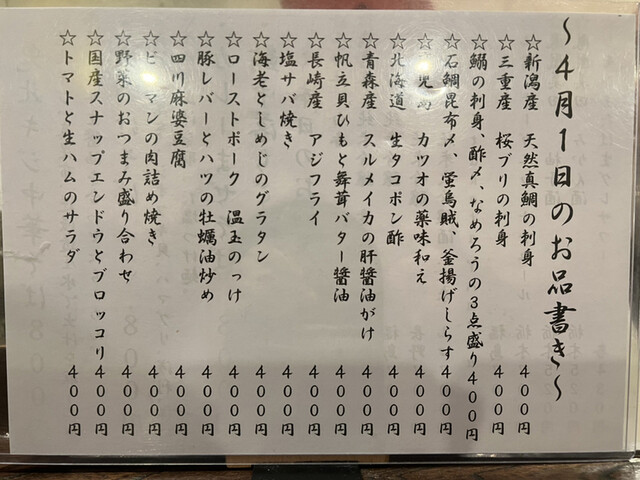 ～4月1日のお品書き～
☆新潟産 天然真鯛の刺身 400円
☆三重産 桜ブリの刺身 400円
☆鰯の刺身、酢〆、なめろうの3点盛り400円
☆石鯛昆布〆、蛍烏賊、釜揚げしらす400円
児島 カツオの薬味和え 400円
☆北海道 生タコポン酢 400円
☆青森産 スルメイカの肝醤油がけ 400円
☆帆立貝ひもと舞茸バター醤油 400円
☆長崎産 アジフライ 400円
☆塩サバ焼き 400円
☆海老としめじのグラタン 400円
☆ローストポーク 温玉のっけ 400円
☆豚レバーとハツの牡蠣油炒め 400円
☆四川麻婆豆腐 400円
☆ピーマンの肉詰め焼き 400円
☆野菜のおつまみ盛り合わせ 400円
☆国産スナップエンドウとブロッコリ 400円
☆トマトと生ハムのサラダ 400円